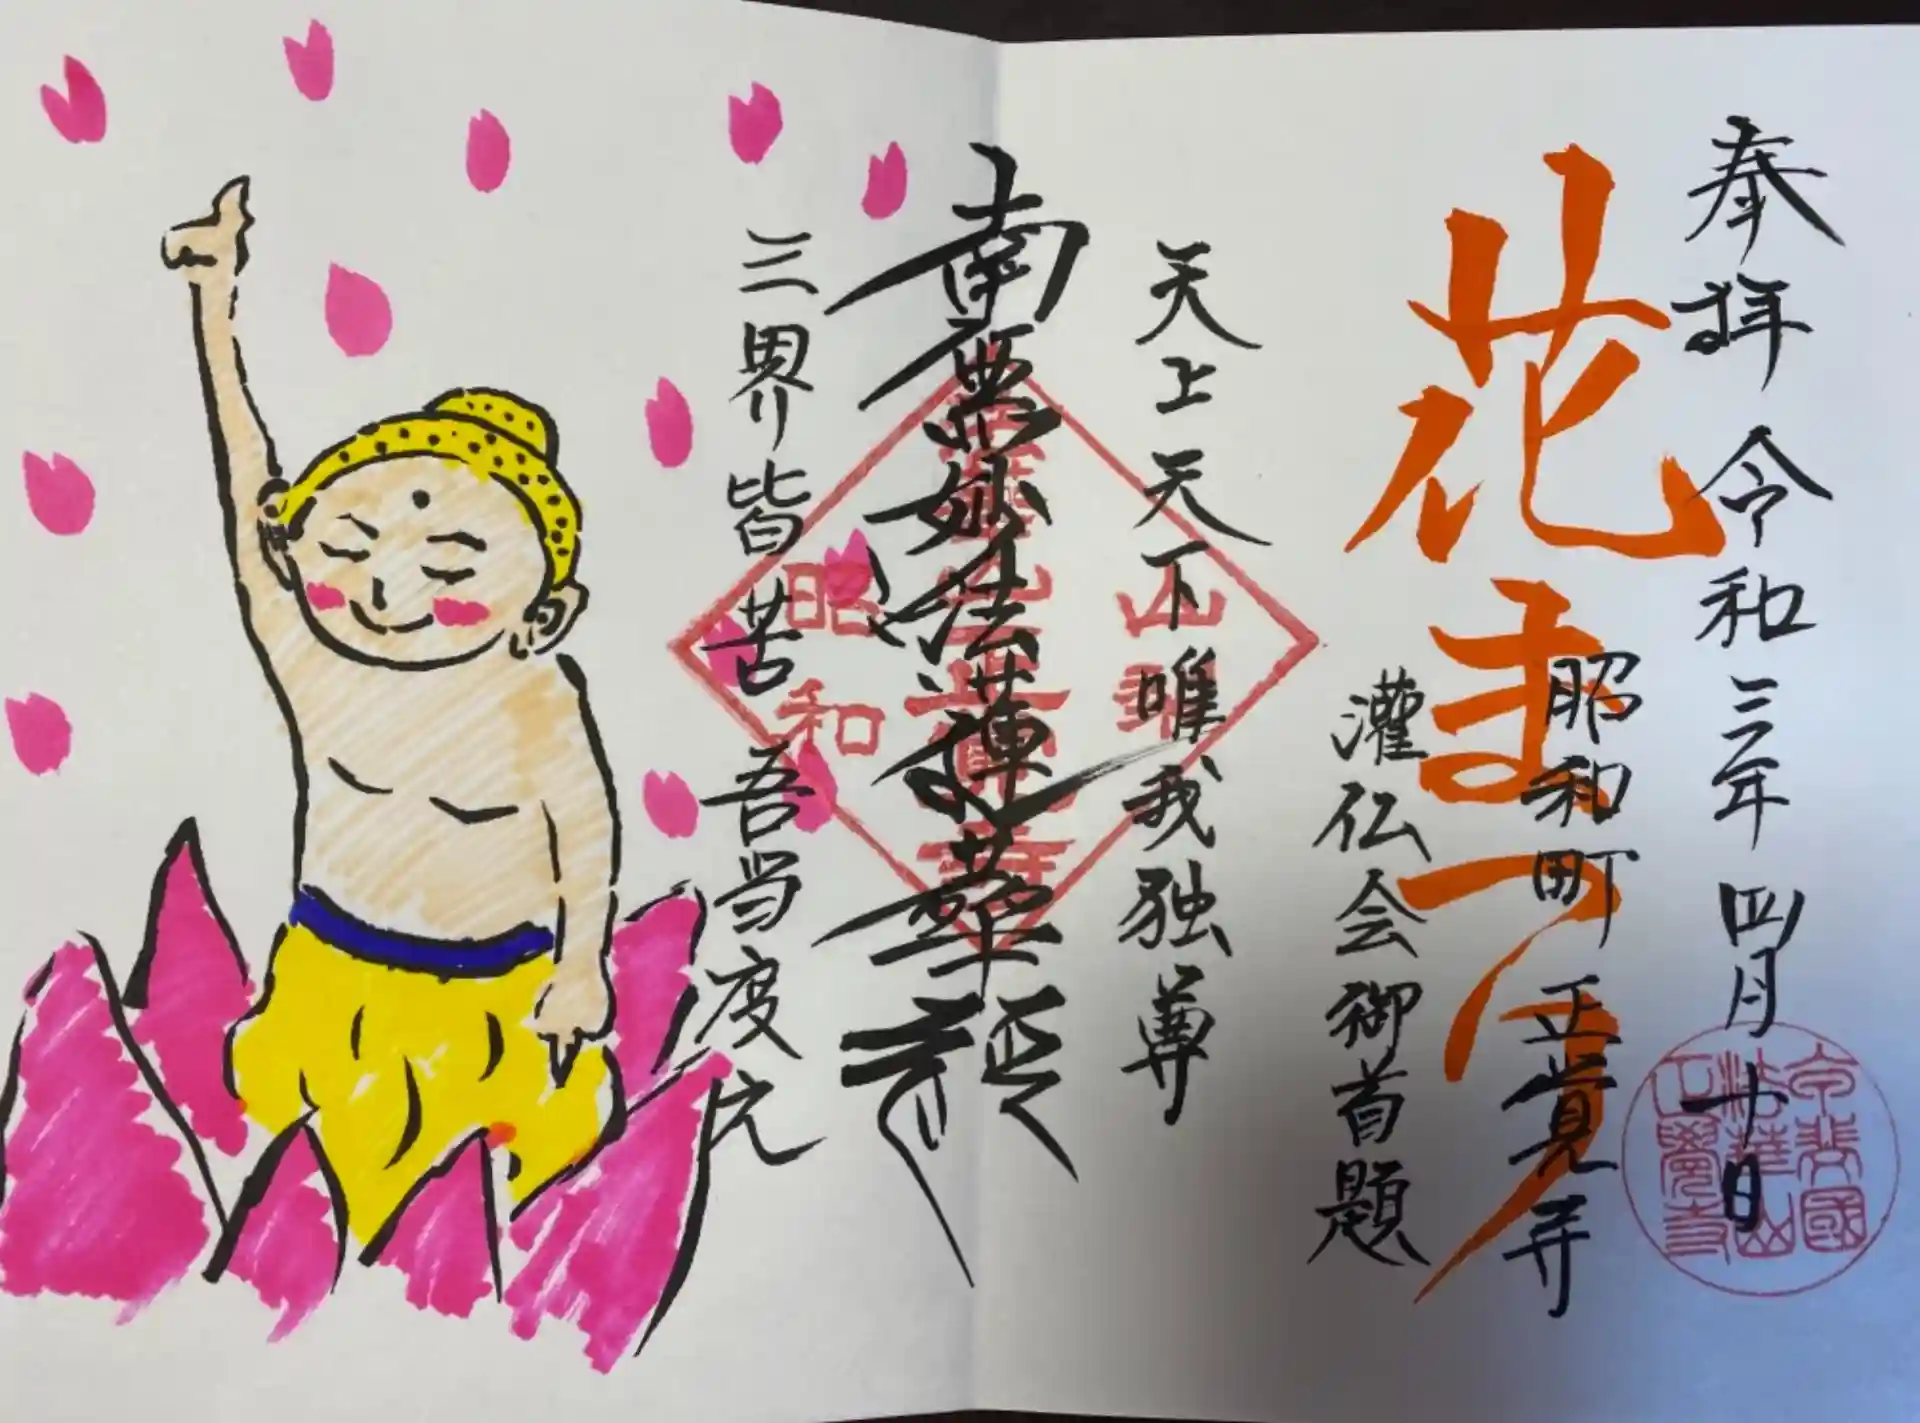 奉拝 令和三年 四月十日
花まつり
昭和町 正覚寺
灌仏会御首題
天上天下唯我独尊
南無妙法蓮華経
三界皆苦 吾当度之
昭和
法華山
正覺寺